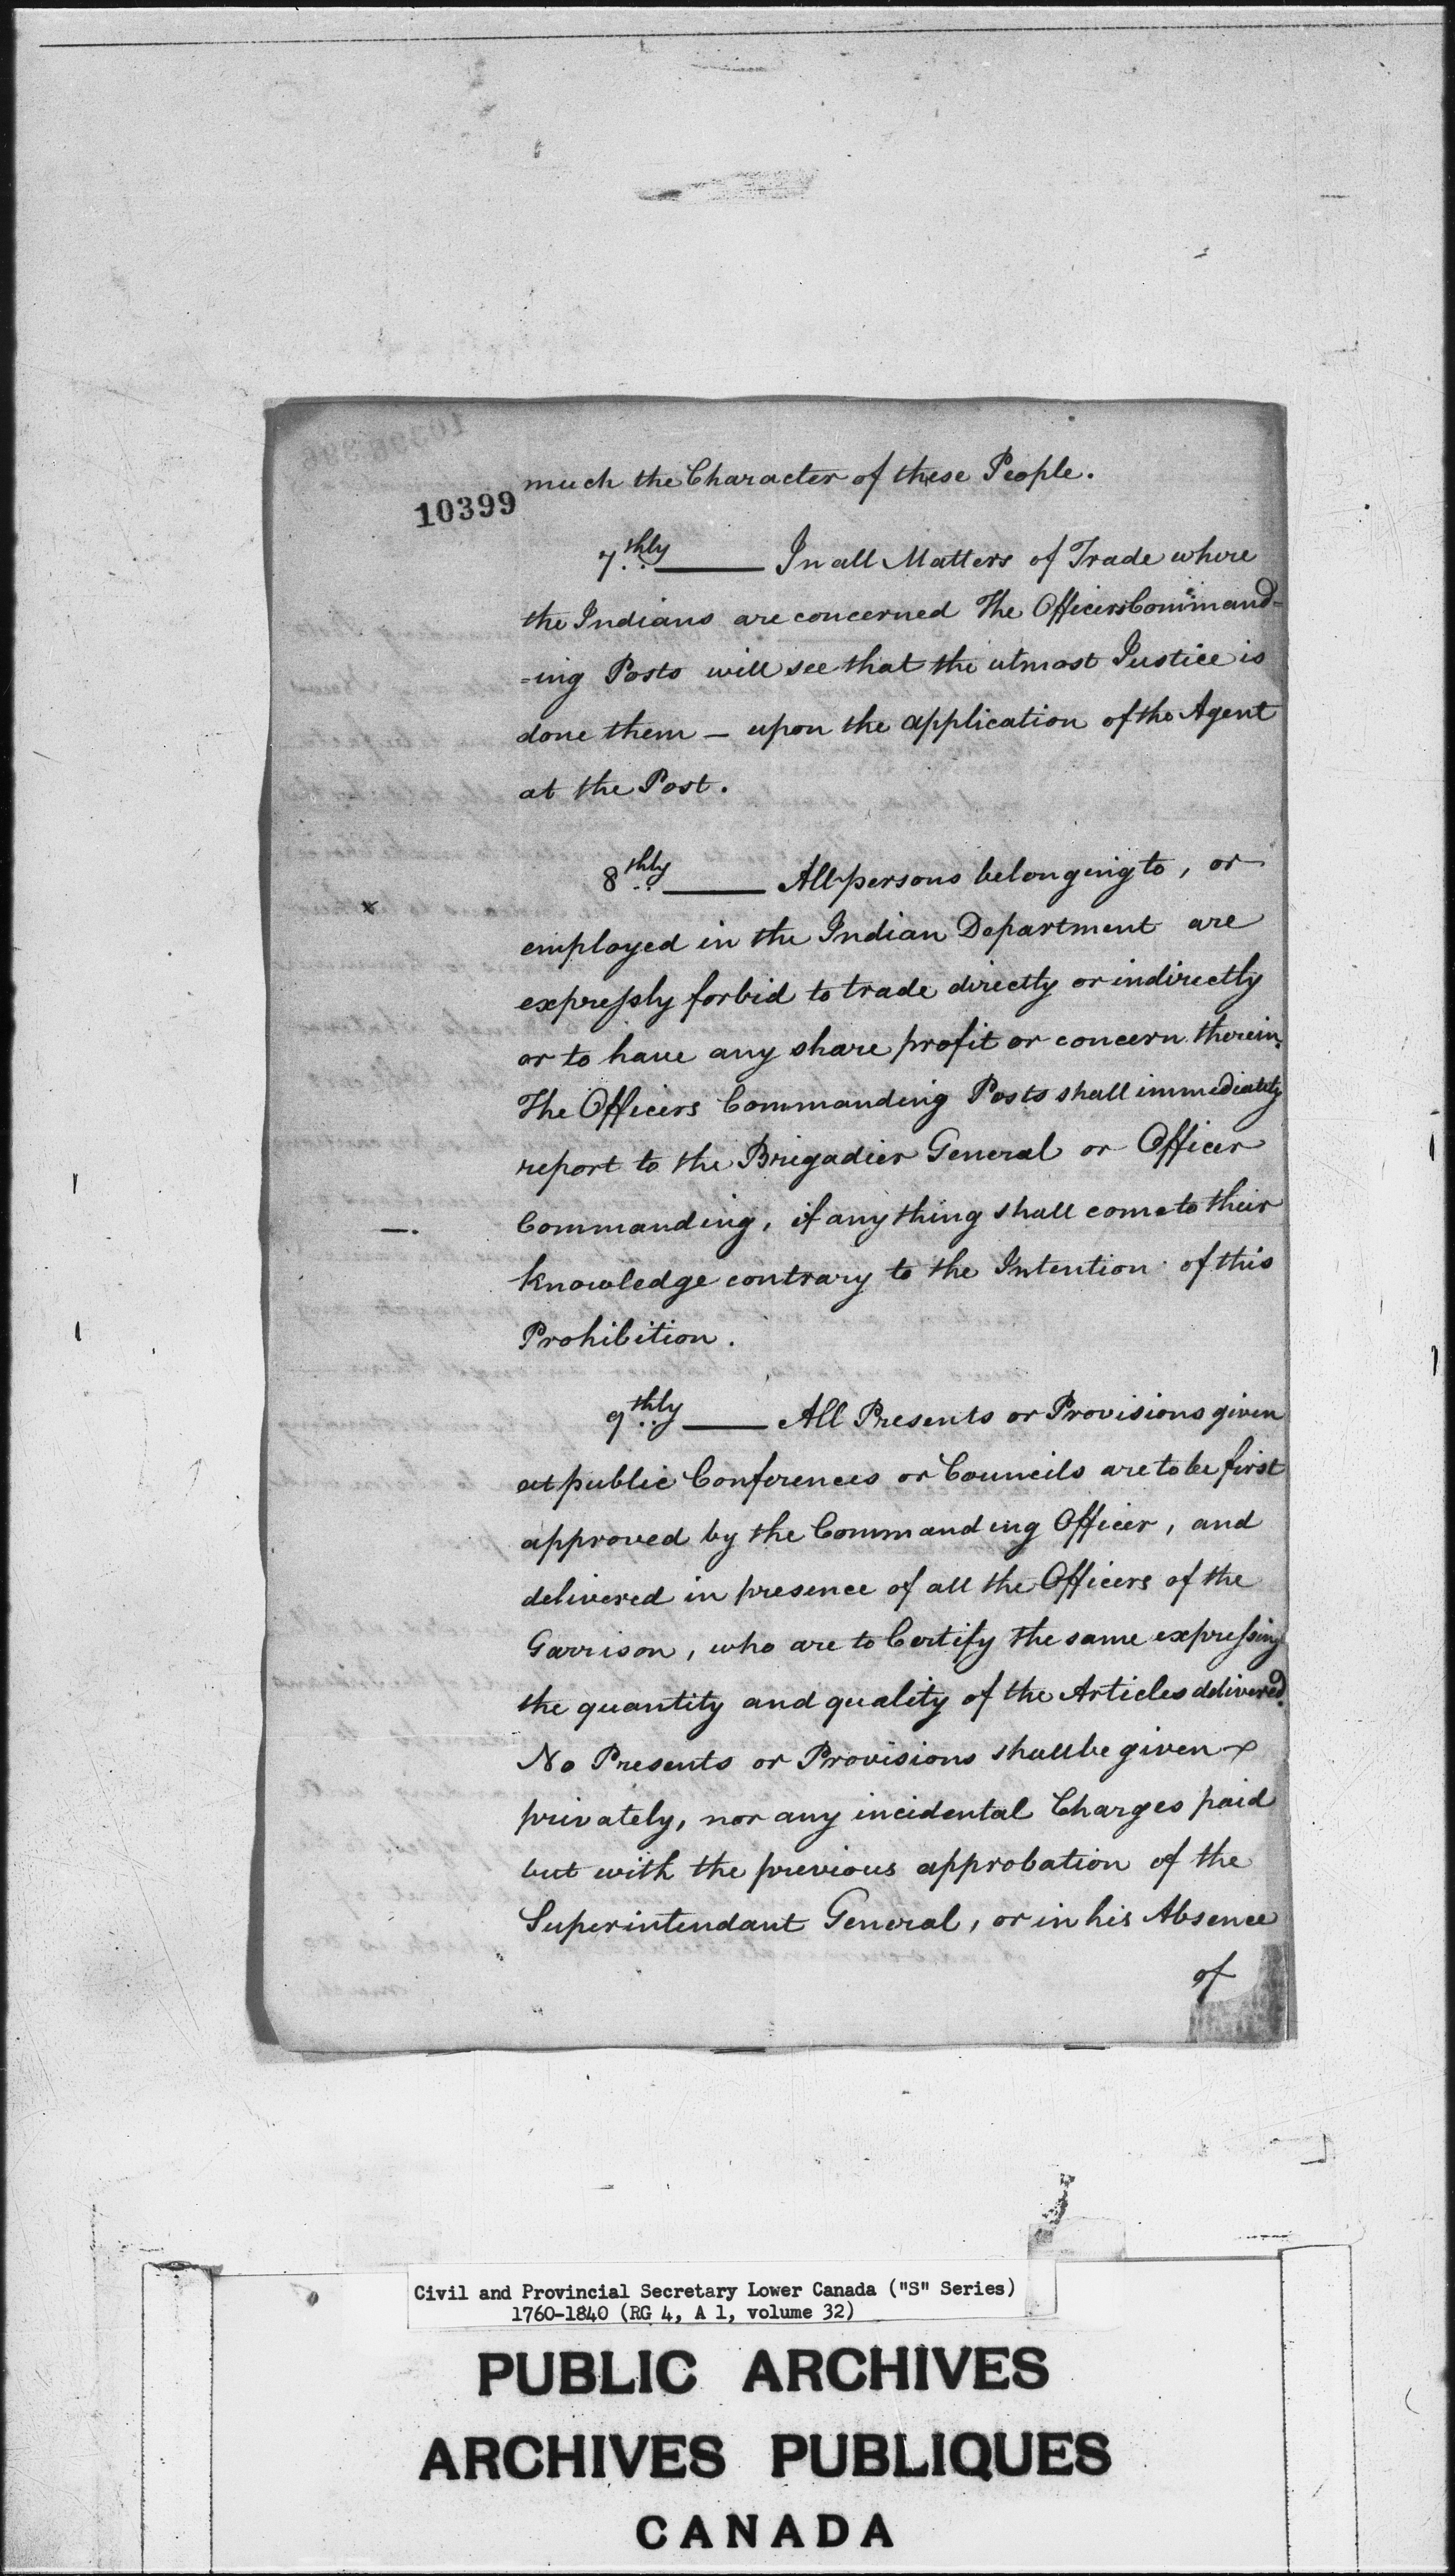 much the Character of these People.
10399
7.thly —— In all Matters of Trade where
the Indians are concerned The Officers Command-
-ing Posts will see that the utmost Justice is
done them — upon the application of the Agent
at the Post.
8.thly —— All persons belonging to, or
x
employed in the Indian Department are
expressly forbid to trade directly or indirectly
or to have any share profit or concern therein.
The Officers Commanding Posts shall immediately
report to the Brigadier General or Officer
Commanding, if any thing shall come to their
knowledge contrary to the Intention of this
Prohibition.
9.thly —— All Presents or Provisions given
at public Conferences or Councils are to be first
approved by the Commanding Officer, and
delivered in presence of all the Officers of the
Garrison, who are to Certify the same expressing
the quantity and quality of the Articles delivered.
No Presents or Provisions shall be given
privately, nor any incidental Charges paid
but with the previous approbation of the
Superintendant General, or in his Absence
of
Civil and Provincial Secretary Lower Canada ("S" Series)
1760-1840 (RG 4, A 1, volume 32)
PUBLIC ARCHIVES
ARCHIVES PUBLIQUES
CANADA